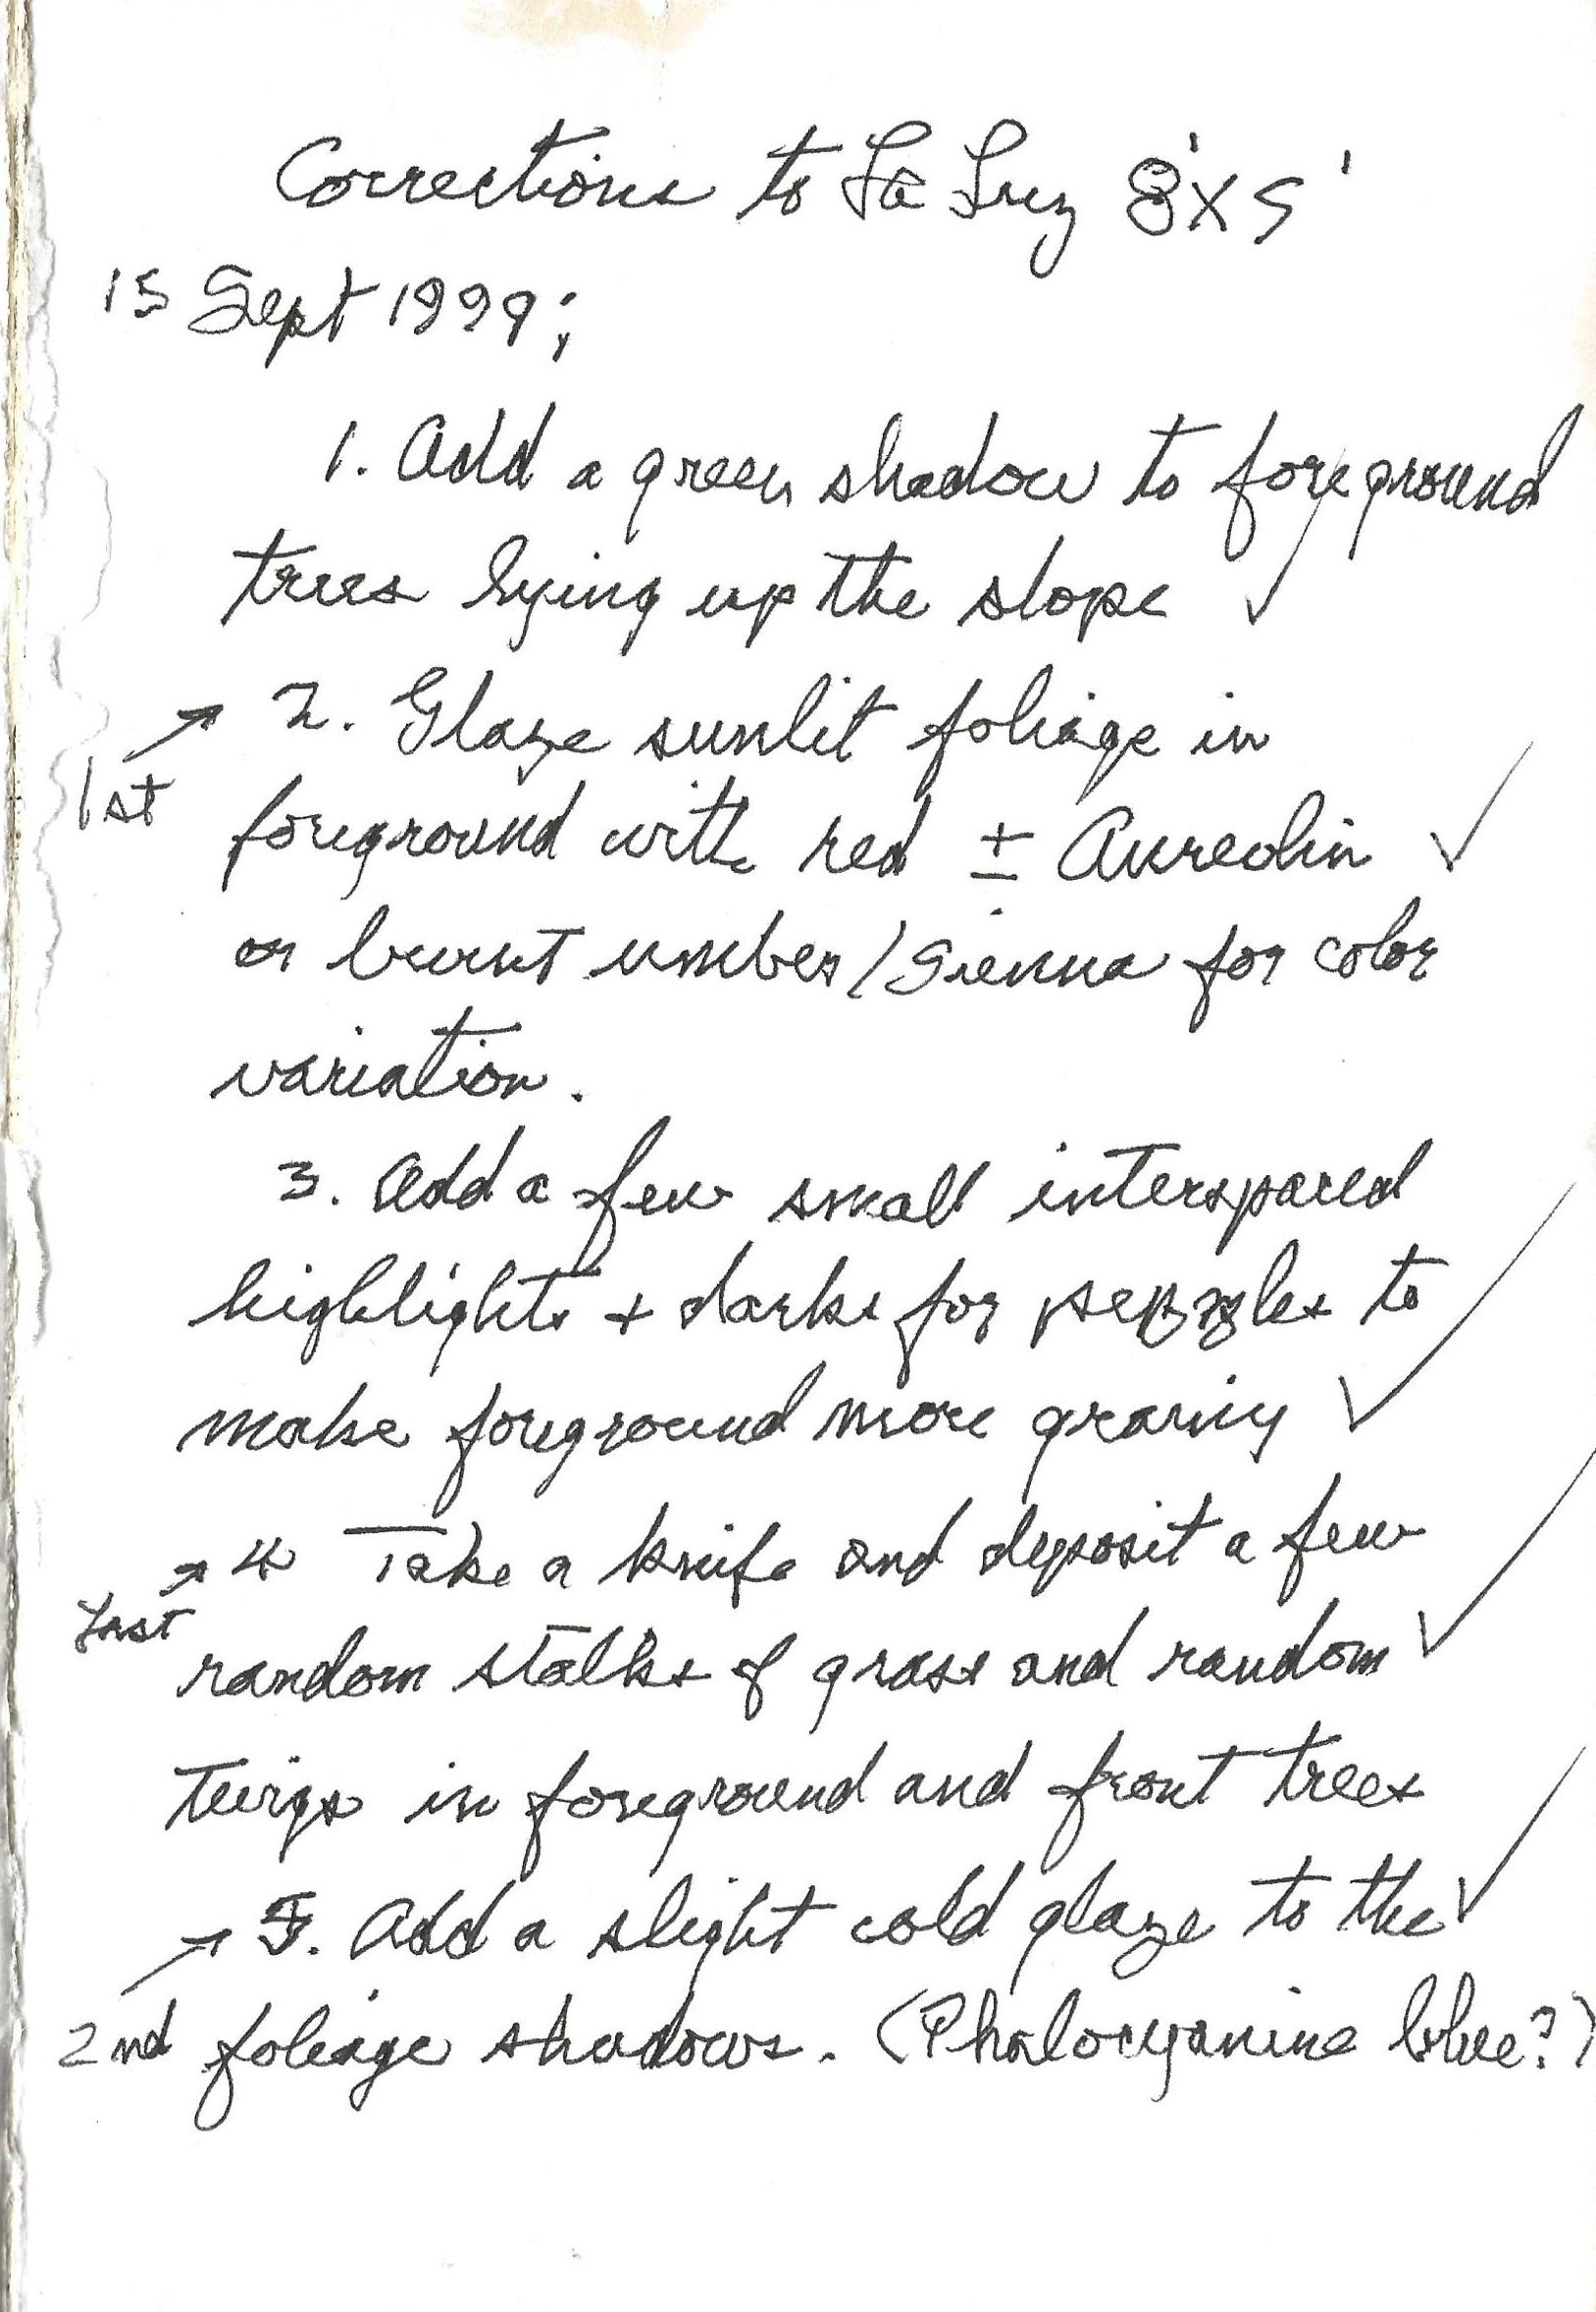 Corrections to La Luz 8'X5'
15 Sept 1999;
1. Add a green shadow to foreground
trees lying up the slope ✓
→ 2. Glaze sunlit foliage in
1st foreground with red ± Aureolin ✓
or burnt umber/Sienna for color
variation.
3. Add a few small interspaced
highlights + darks for to
make foreground more grainy ✓
→ 4 Take a knife and deposit a few
Last random stalks of grass and random ✓
twigs in foreground and front trees
→ 5. Add a slight cold glaze to the ✓
2nd foliage shadows. (Phalocyanine blue?)